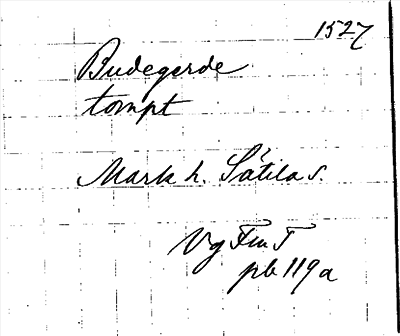 1527
Budegerde
tompt
Mark h. Sätila s.
Vg Fm T
pb 119 a